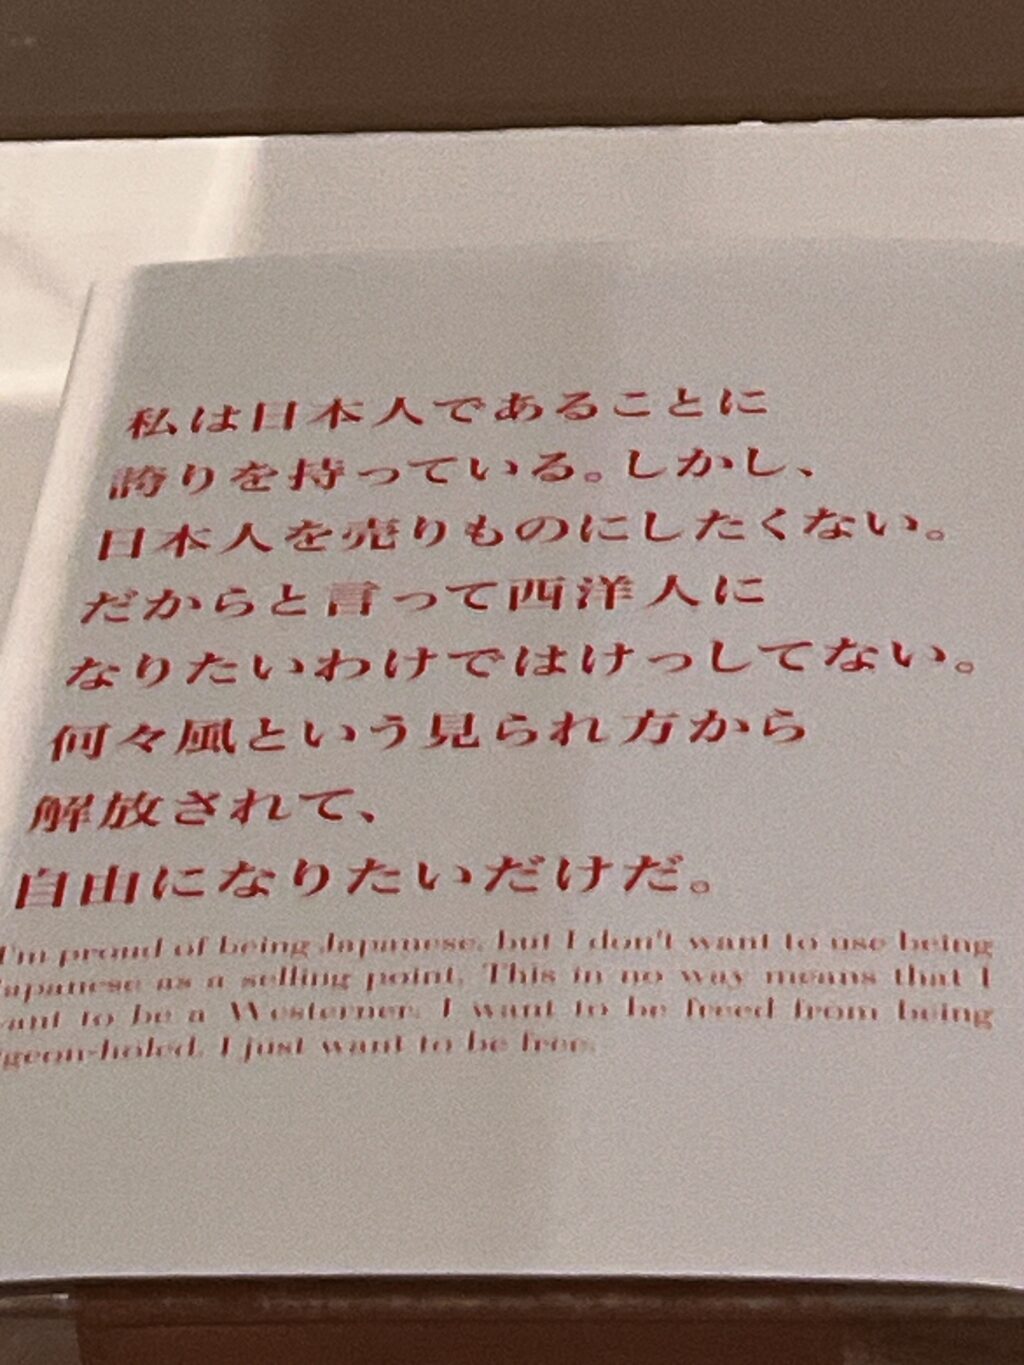 私は日本人であることに
誇りを持っている。しかし、
日本人を売りものにしたくない。
だからと言って西洋人に
なりたいわけではけっしてない。
何々風という見られ方から
解放されて、
自由になりたいだけだ。
I'm proud of being Japanese, but I don't want to use being
Japanese as a selling point. This in no way means that I
want to be a Westerner. I want to be freed from being
geon-holed. I just want to be free.